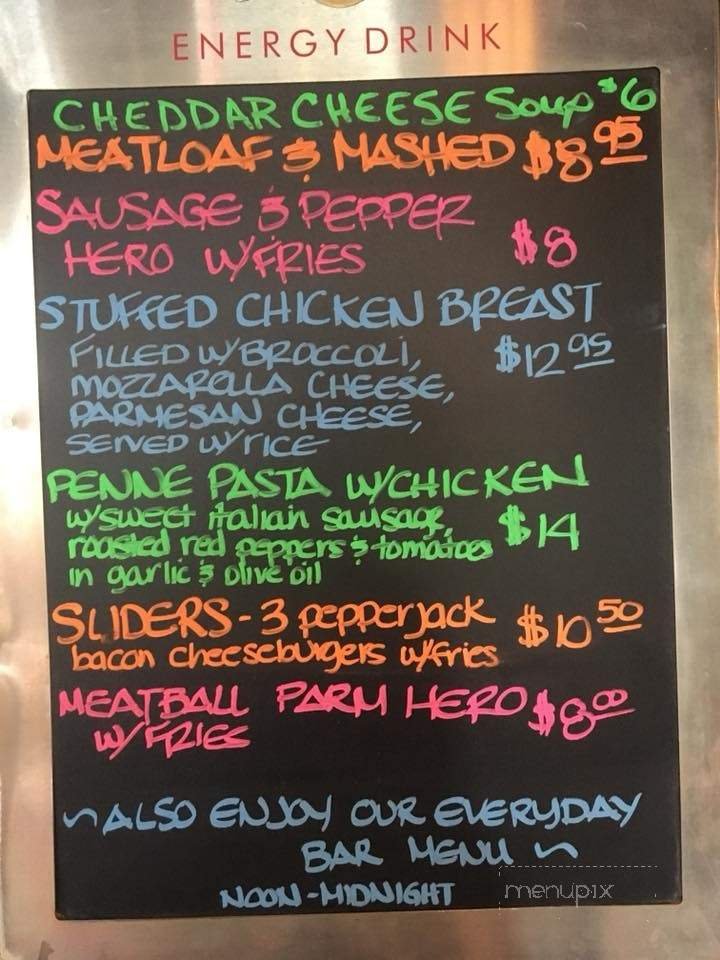 ENERGY DRINK
CHEDDAR CHEESE Soup $6
MEATLOAF & MASHED $8 95
SAUSAGE & PEPPER
HERO W/FRIES $8
STUFFED CHICKEN BREAST
FILLED W/BROCCOLI, $12 95
MOZZARELLA CHEESE,
PARMESAN CHEESE,
SERVED W/RICE
PENNE PASTA W/CHICKEN
w/sweet italian sausage, $14
roasted red peppers & tomatoes
in garlic & olive oil
SLIDERS - 3 pepperjack $10 50
bacon cheeseburgers w/fries
MEATBALL PARM HERO $8.00
W/ FRIES
~ALSO ENJOY OUR EVERYDAY
BAR MENU ~
NOON-MIDNIGHT
menupix